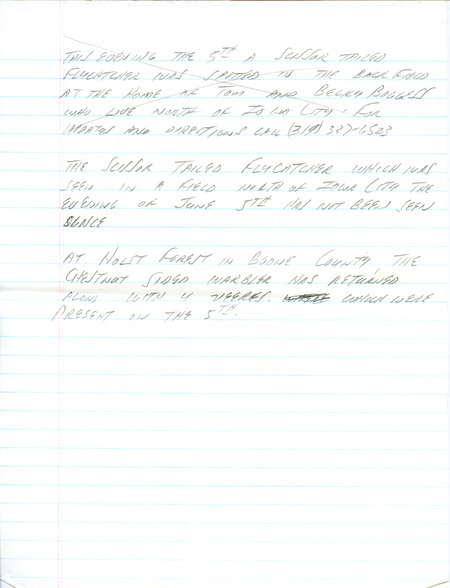 THIS EVENING THE 5TH A SCISSOR TAILED
FLYCATCHER WAS SPOTTED IN THE BACK FIELD
AT THE HOME OF TOM AND BECKY BOGGESS
WHO LIVE NORTH OF IOWA CITY. FOR
UPDATES AND DIRECTIONS CALL (319) 337-6503
THE SCISSOR TAILED FLYCATCHER WHICH WAS
SEEN IN A FIELD NORTH OF IOWA CITY THE
EVENING OF JUNE 5TH HAS NOT BEEN SEEN
SINCE
AT HOLST FOREST IN BOONE COUNTY THE
CHESTNUT SIDED WARBLER HAS RETURNED
ALONG WITH 4 VEERES. WHICH WERE
PRESENT ON THE 5TH.